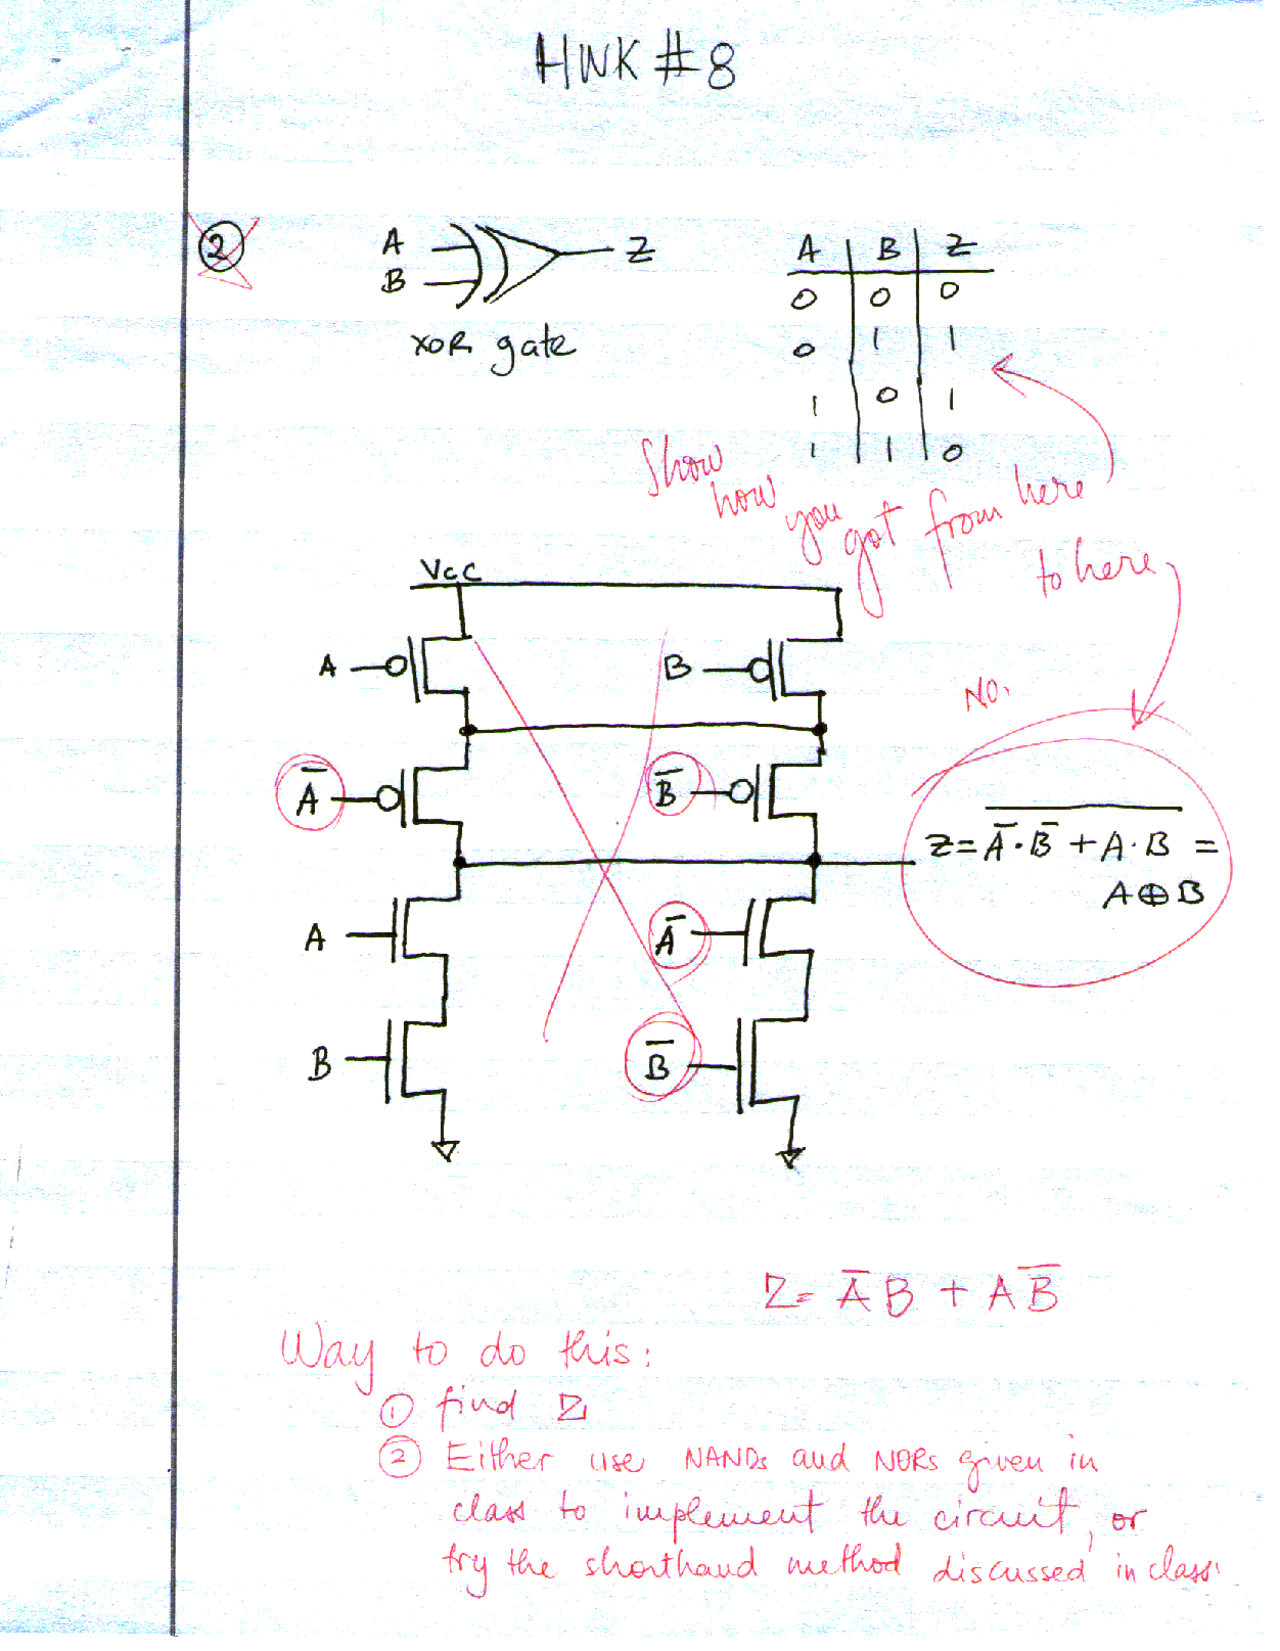 HWK #8
2
A
B
Z
XOR gate
A B Z
0 0 0
0 1 1
1 0 1
1 1 0
Show how you got from here
to here
Vcc
A
B
NO.
A̅
B̅
Z = \overline{A̅·B̅ + A·B} =
A⊕B
A
A̅
B
B̅
Z = A̅B + AB̅
Way to do this:
① find Z
② Either use NANDs and NORs given in
class to implement the circuit, or
try the shorthand method discussed in class.